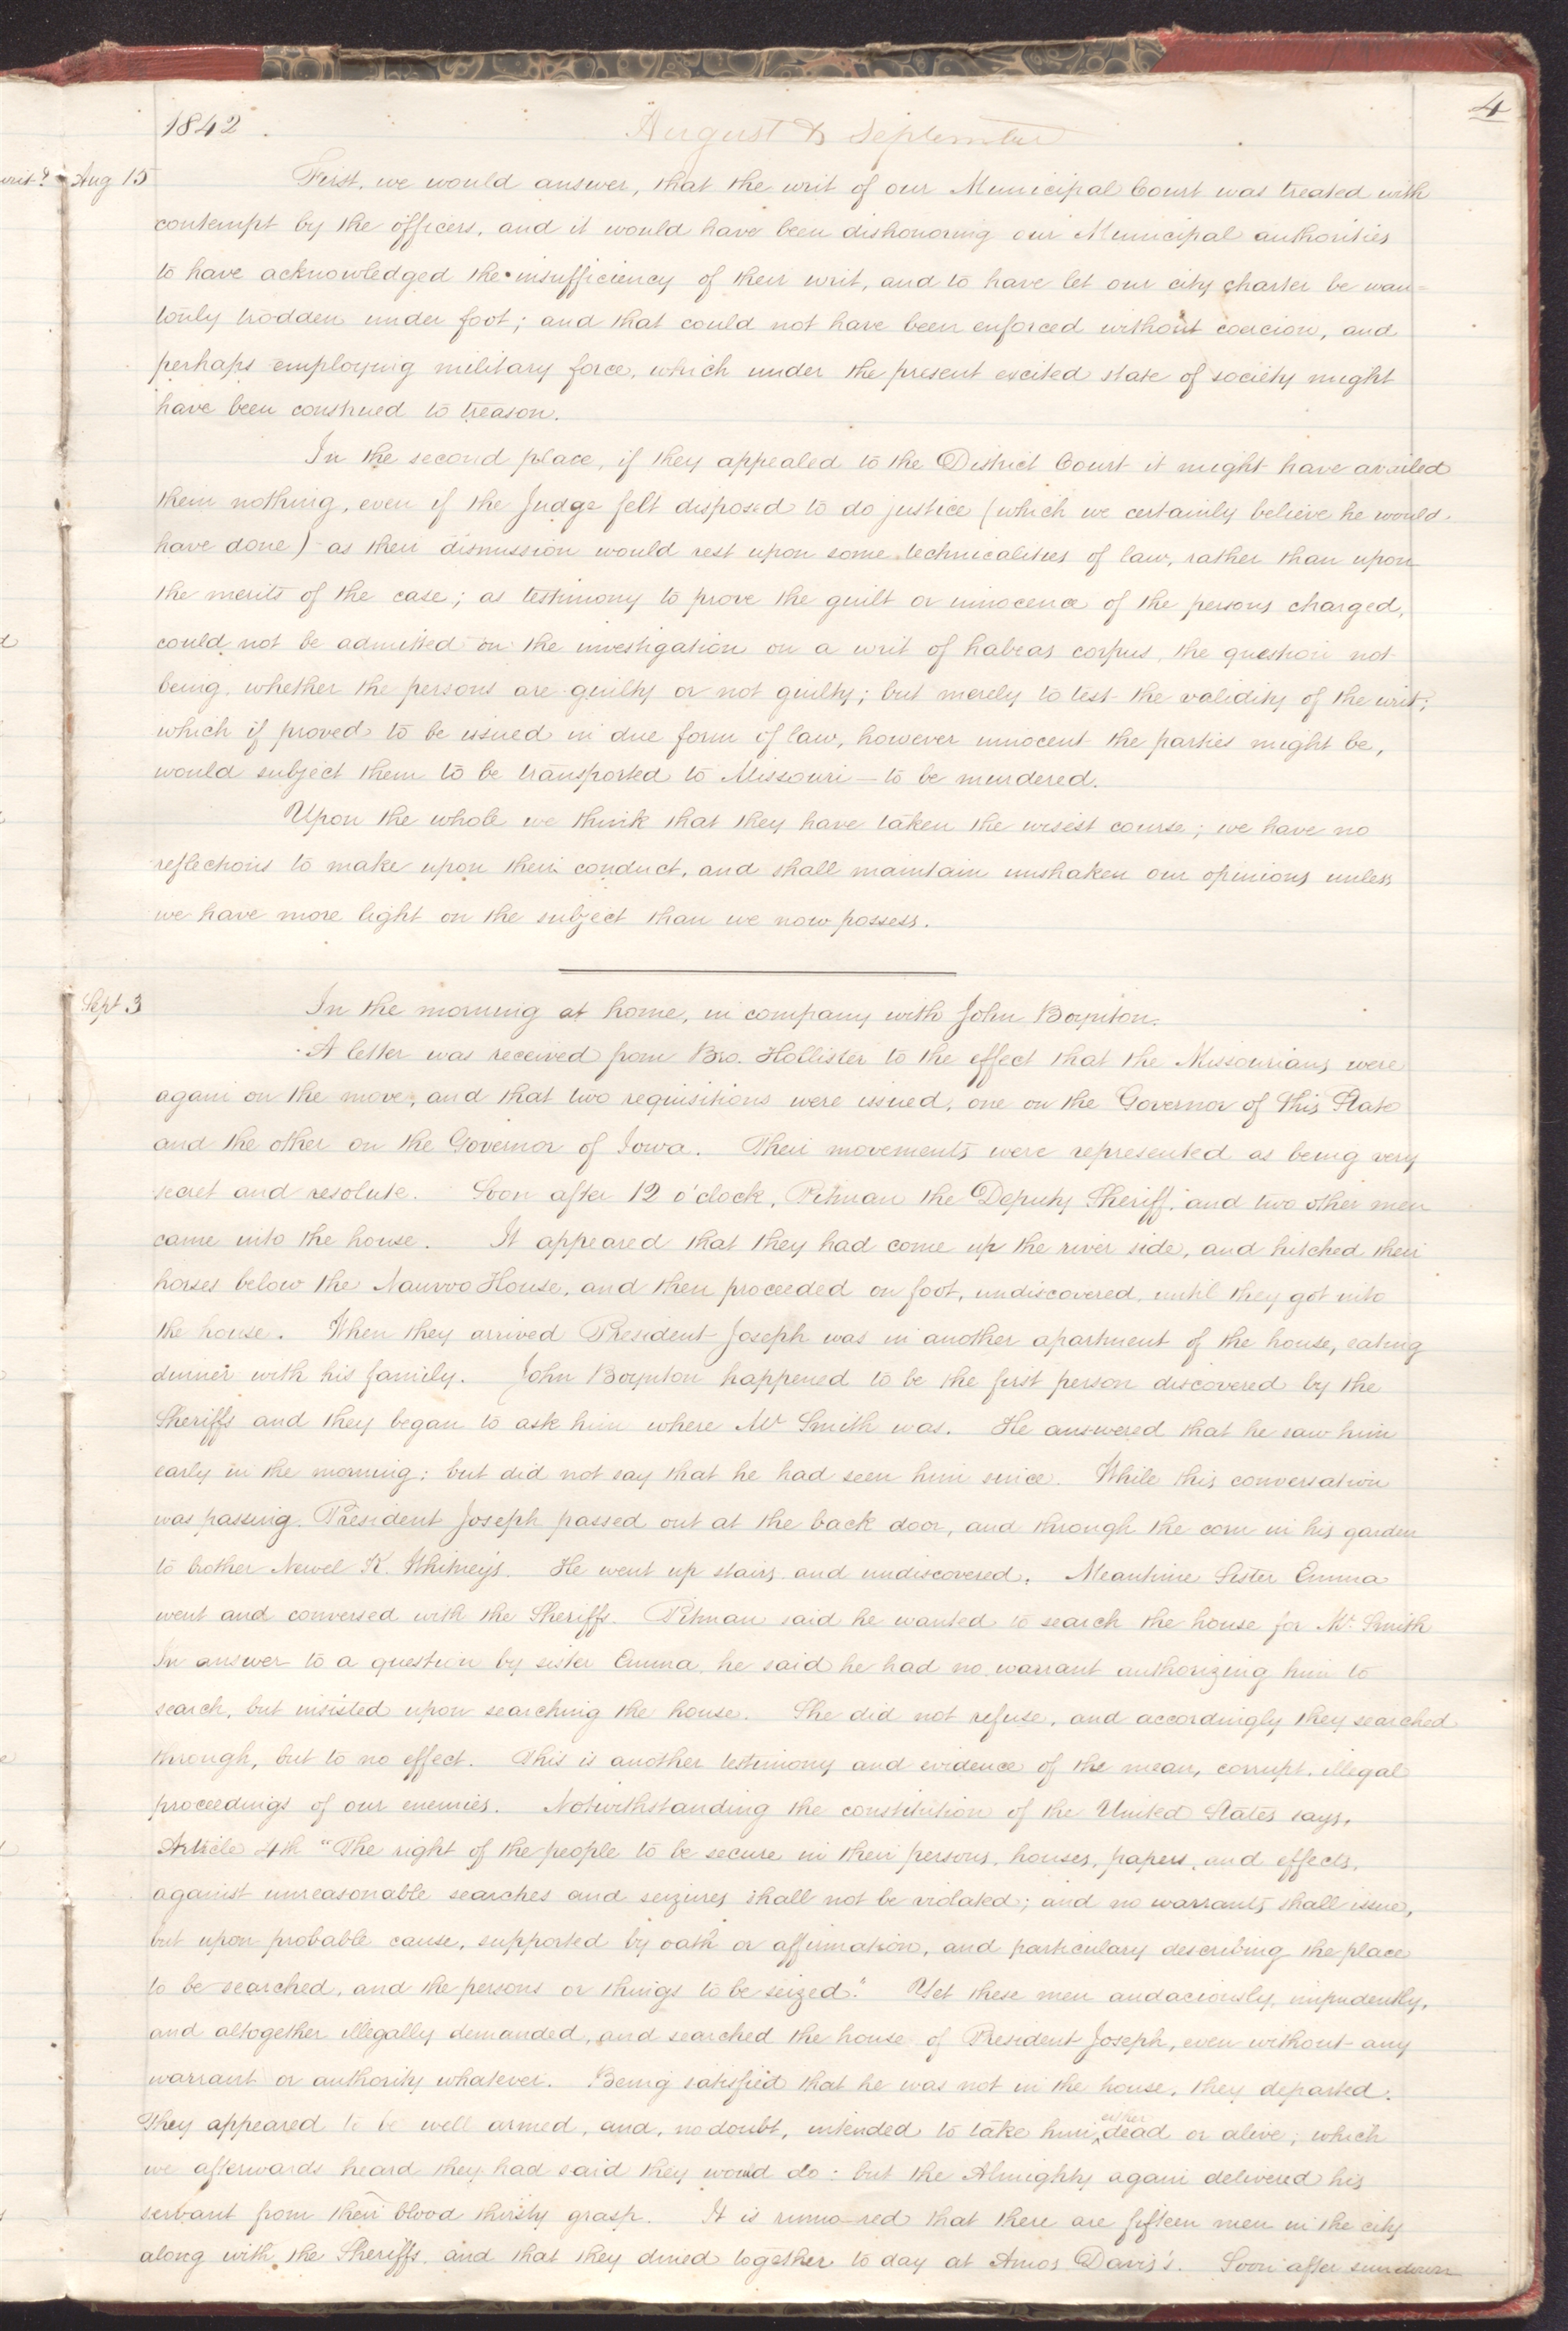 4
1842
August & September
Aug 15
First, we would answer, that the writ of our Municipal Court was treated with
contempt by the officers, and it would have been dishonoring our Municipal authorities
to have acknowledged the insufficiency of their writ, and to have let our city charter be wan=
tonly trodden under foot; and that could not have been enforced without coercion, and
perhaps employing military force, which under the present excited state of society might
have been construed to treason.
In the second place, if they appealed to the District Court it might have availed
them nothing, even if the Judge felt disposed to do justice (which we certainly believe he would
have done) as their dismission would rest upon some technicalities of law, rather than upon
the merits of the case; as testimony to prove the guilt or innocence of the persons charged,
could not be admitted on the investigation on a writ of habeas corpus, the question not
being, whether the persons are guilty or not guilty; but merely to test the validity of the writ;
which if proved to be issued in due form of law, however innocent the parties might be,
would subject them to be transported to Missouri—to be murdered.
Upon the whole we think that they have taken the wisest course; we have no
reflections to make upon their conduct, and shall maintain unshaken our opinions unless
we have more light on the subject than we now possess.
Sept 3
In the morning at home, in company with John Boynton.
A letter was received from Bro. Hollister to the effect that the Missourians were
again on the move, and that two requisitions were issued, one on the Governor of this State
and the other on the Governor of Iowa. Their movements were represented as being very
secret and resolute. Soon after 12 o'clock, Pitman the Deputy Sheriff, and two other men
came into the house. It appeared that they had come up the river side, and hitched their
horses below the Nauvoo House, and then proceeded on foot, undiscovered, until they got into
the house. When they arrived President Joseph was in another apartment of the house, eating
dinner with his family. John Boynton happened to be the first person discovered by the
Sheriffs and they began to ask him where Mr Smith was. He answered that he saw him
early in the morning; but did not say that he had seen him since. While this conversation
was passing, President Joseph passed out at the back door, and through the corn in his garden
to brother Newel K. Whitney's. He went up stairs and undiscovered. Meantime Sister Emma
went and conversed with the Sheriffs. Pitman said he wanted to search the house for Mr. Smith
In answer to a question by sister Emma, he said he had no warrant authorizing him to
search, but insisted upon searching the house. She did not refuse, and accordingly they searched
through, but to no effect. This is another testimony and evidence of the mean, corrupt, illegal
proceedings of our enemies. Notwithstanding the constitution of the United States says,
Article 4th "The right of the people to be secure in their persons, houses, papers, and effects,
against unreasonable searches and seizures shall not be violated; and no warrants shall issue,
but upon probable cause, supported by oath or affirmation, and particulary describing the place
to be searched, and the persons or things to be seized." Yet these men audaciously, impudently,
and altogether illegally demanded, and searched the house of President Joseph, even without any
warrant or authority whatever. Being satisfied that he was not in the house, they departed.
They appeared to be well armed, and, no doubt, intended to take him ^either dead or alive; which
we afterwards heard they had said they would do: but the Almighty again delivered his
servant from their blood thirsty grasp. It is rumored that there are fifteen men in the city
along with the Sheriffs, and that they dined together to day at Amos Davis's. Soon after sundown